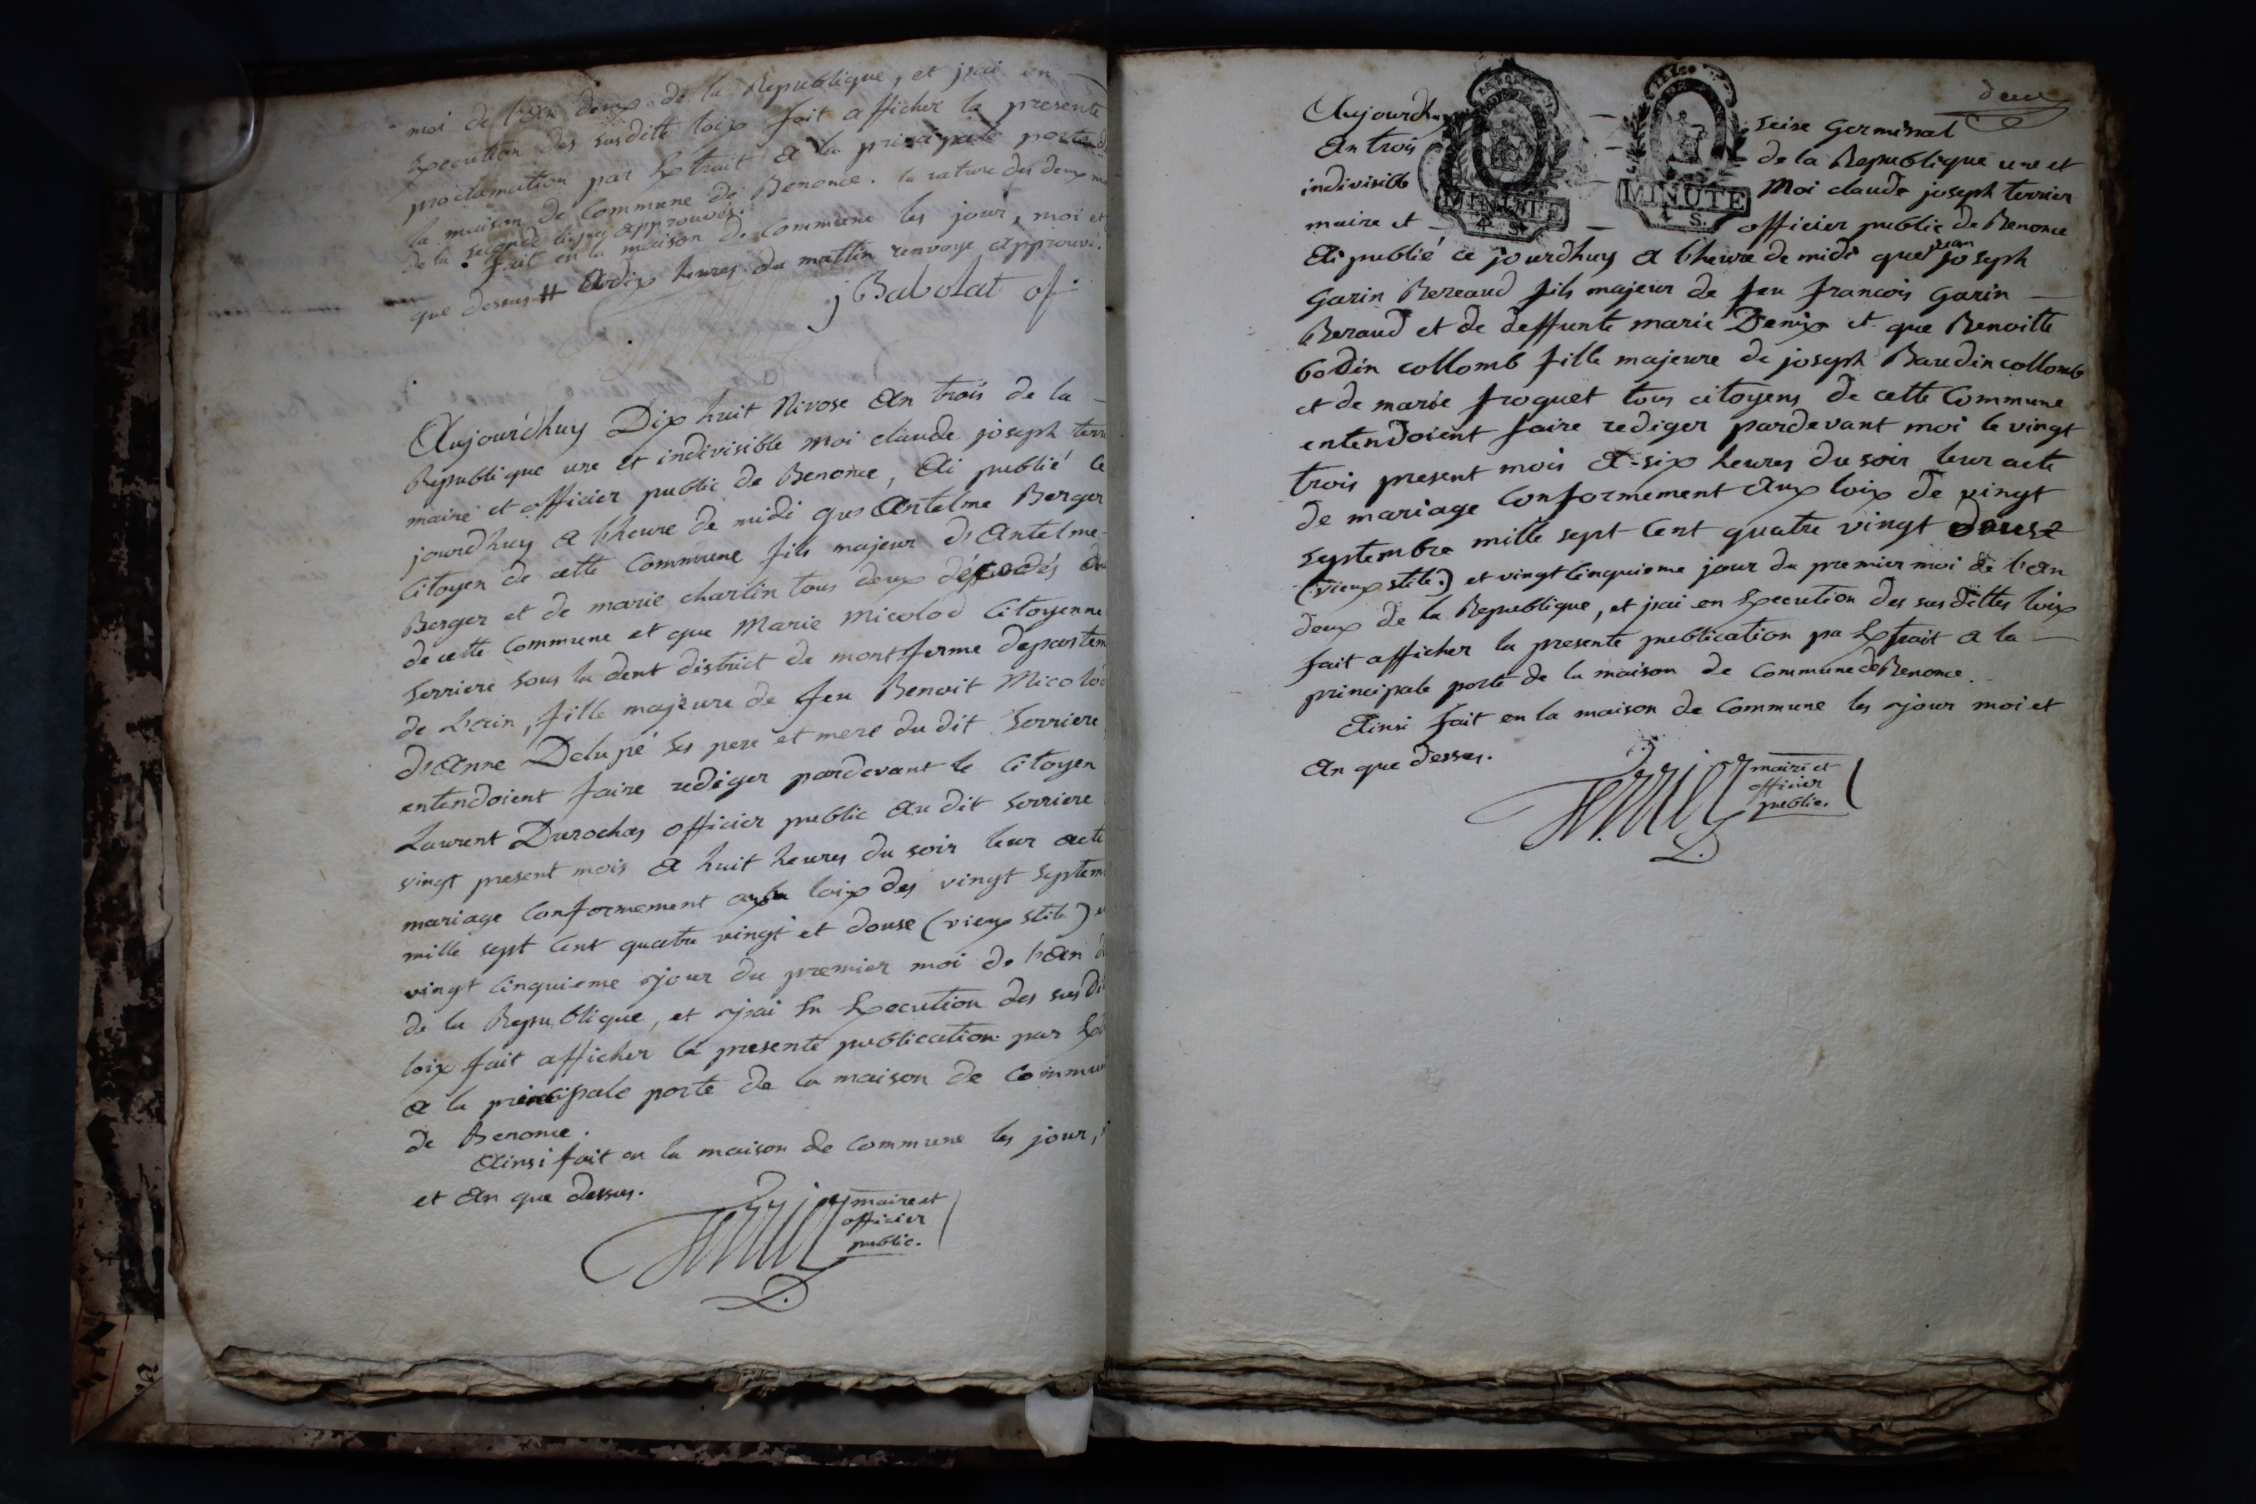 moi de l'an deux de la Republique, et jai en
Execution des susditte loix fait afficher la presente
proclamation par Extrait a la principale porte de
la maison de Commune de Benonce. la rature des deux mo
de la seconde ligne approuvés.
fait en la maison de Commune les jour, moi et
que dessus # a dix heures du mattin renvoye approuvé.
j Babolat of
Aujourdhuy Dix huit Nivose An trois de la
Republique une et indivisible moi claude joseph terri
maire et officier public de Benonce, Ai publié ce
jourdhuy a lheure de midi que Antelme Berger
Citoyen de cette Commune fils majeur d'Antelme
Berger et de marie charlin tous deux décédés
de cette Commune et que Marie Micolod Citoyenne
serriere sous la dent district de montferme departem
de L'ein, fille majeure de feu Benoit Micolod
d'Anne Delupé ses pere et mere du dit Serriere
entendoient faire rediger pardevant le Citoyen
Laurent Durochas officier public au dit serriere
vingt present mois a huit heures du soir leur acte
mariage Conformement aux loix des vingt septem
mille sept Cent quatre vingt et douse (vieux stile) e
vingt Cinquieme jour du premier moi de l'an d
de la Republique, et jai En Execution des susdi
loix fait afficher la presente publication par Ex
a la principale porte de la maison de Commun
de Benonce.
Ainsi fait en la maison de Commune les jour,
et An que dessus.
Terrier maire et
officier
public.
deux
Aujourdhuy seise Germinal
An trois de la Republique une et
indivisible Moi claude joseph terrier
maire et officier public de Benonce
MINUTE
4 S.
MINUTE
4 S.
jean
Ai publié ce jourdhuy a lheure de midi que joseph
Garin Bereaud fils majeur de feu francois Garin
Beraud et de deffunte marie Denix et que Benoitte
bodin collomb fille majeure de joseph Baudin collomb
et de marie froquet tous citoyens de cette Commune
entendoient faire rediger pardevant moi le vingt
trois present mois a six heures du soir leur acte
de mariage Conformement aux loix de vingt
septembre mille sept Cent quatre vingt douse
(vieux stile) et vingt Cinquieme jour du premier moi de l'an
deux de la Republique, et jai en Execution des susdittes loix
fait afficher la presente publication pa Extrait a la
principale porte de la maison de Commune de Benonce.
Ainsi fait en la maison de Commune les jour moi et
An que dessus.
Terrier maire et
officier
public.